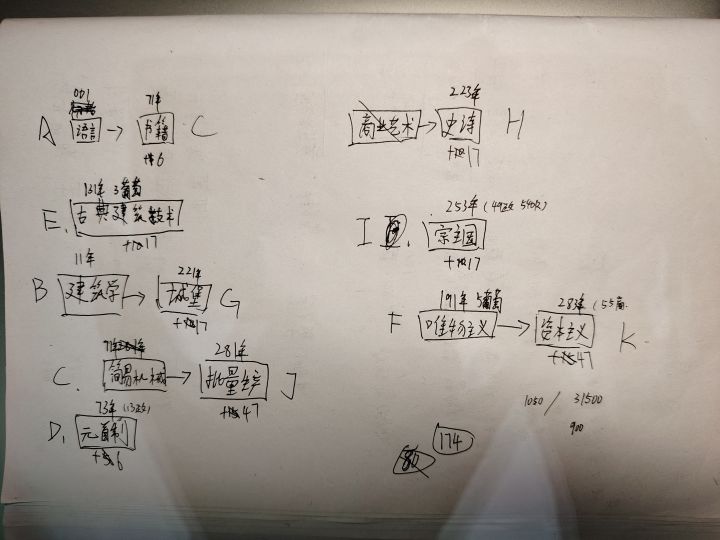 001
A 语言 → 书籍 C
71年
6
131年 3葡萄
E. 古典建筑技术
+17
11年
B 建筑学 → 城堡 G
221年
+17
C. 简易机械 → 批量生产 J
281年
47
73年
D. 元首制
6
223年
商业艺术 → 史诗 H
17
253年
I 宗主国
+17
191年 5葡萄
F 唯物主义 → 资本主义 K.
283年
47
1050 / 31500
900
174